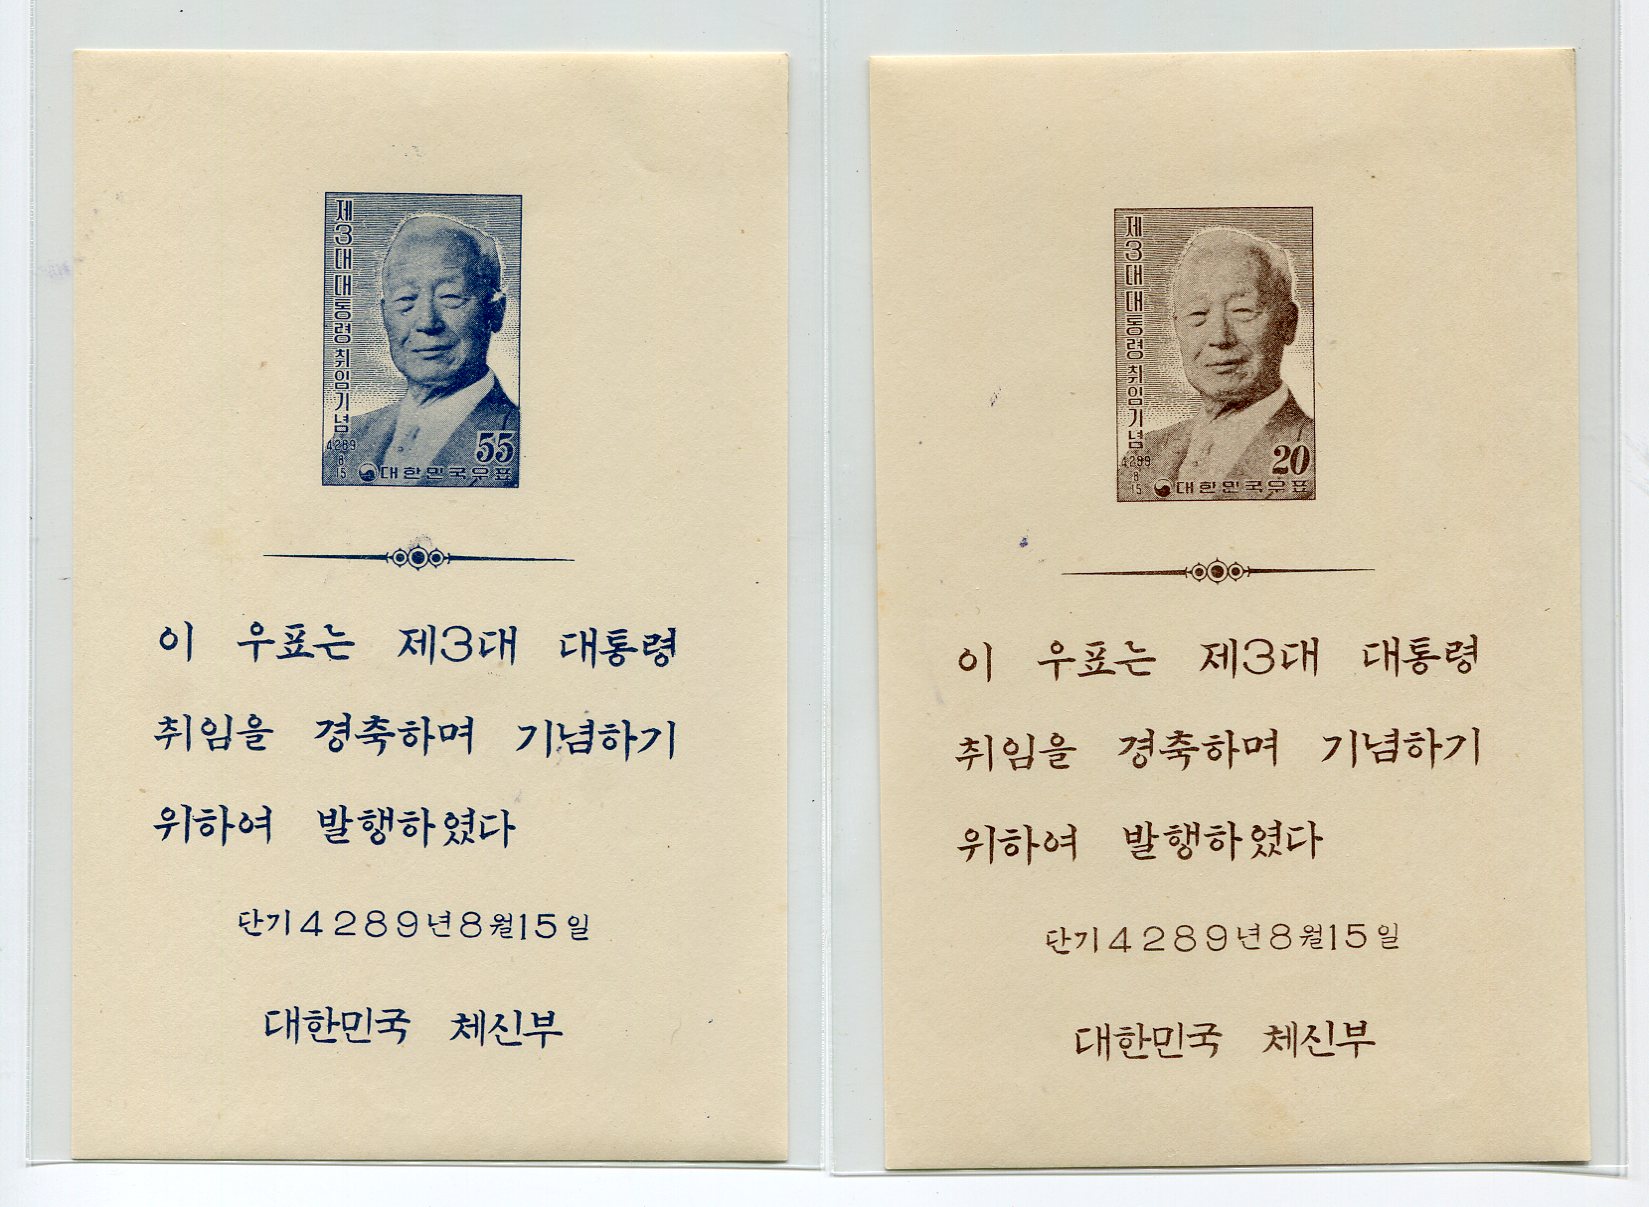 제3대 대통령 취임기념
4289
8
15
55
대한민국우표
이 우표는 제3대 대통령
취임을 경축하며 기념하기
위하여 발행하였다
단기4289년8월15일
대한민국 체신부
제3대 대통령 취임기념
4289
8
15
20
대한민국우표
이 우표는 제3대 대통령
취임을 경축하며 기념하기
위하여 발행하였다
단기4289년8월15일
대한민국 체신부